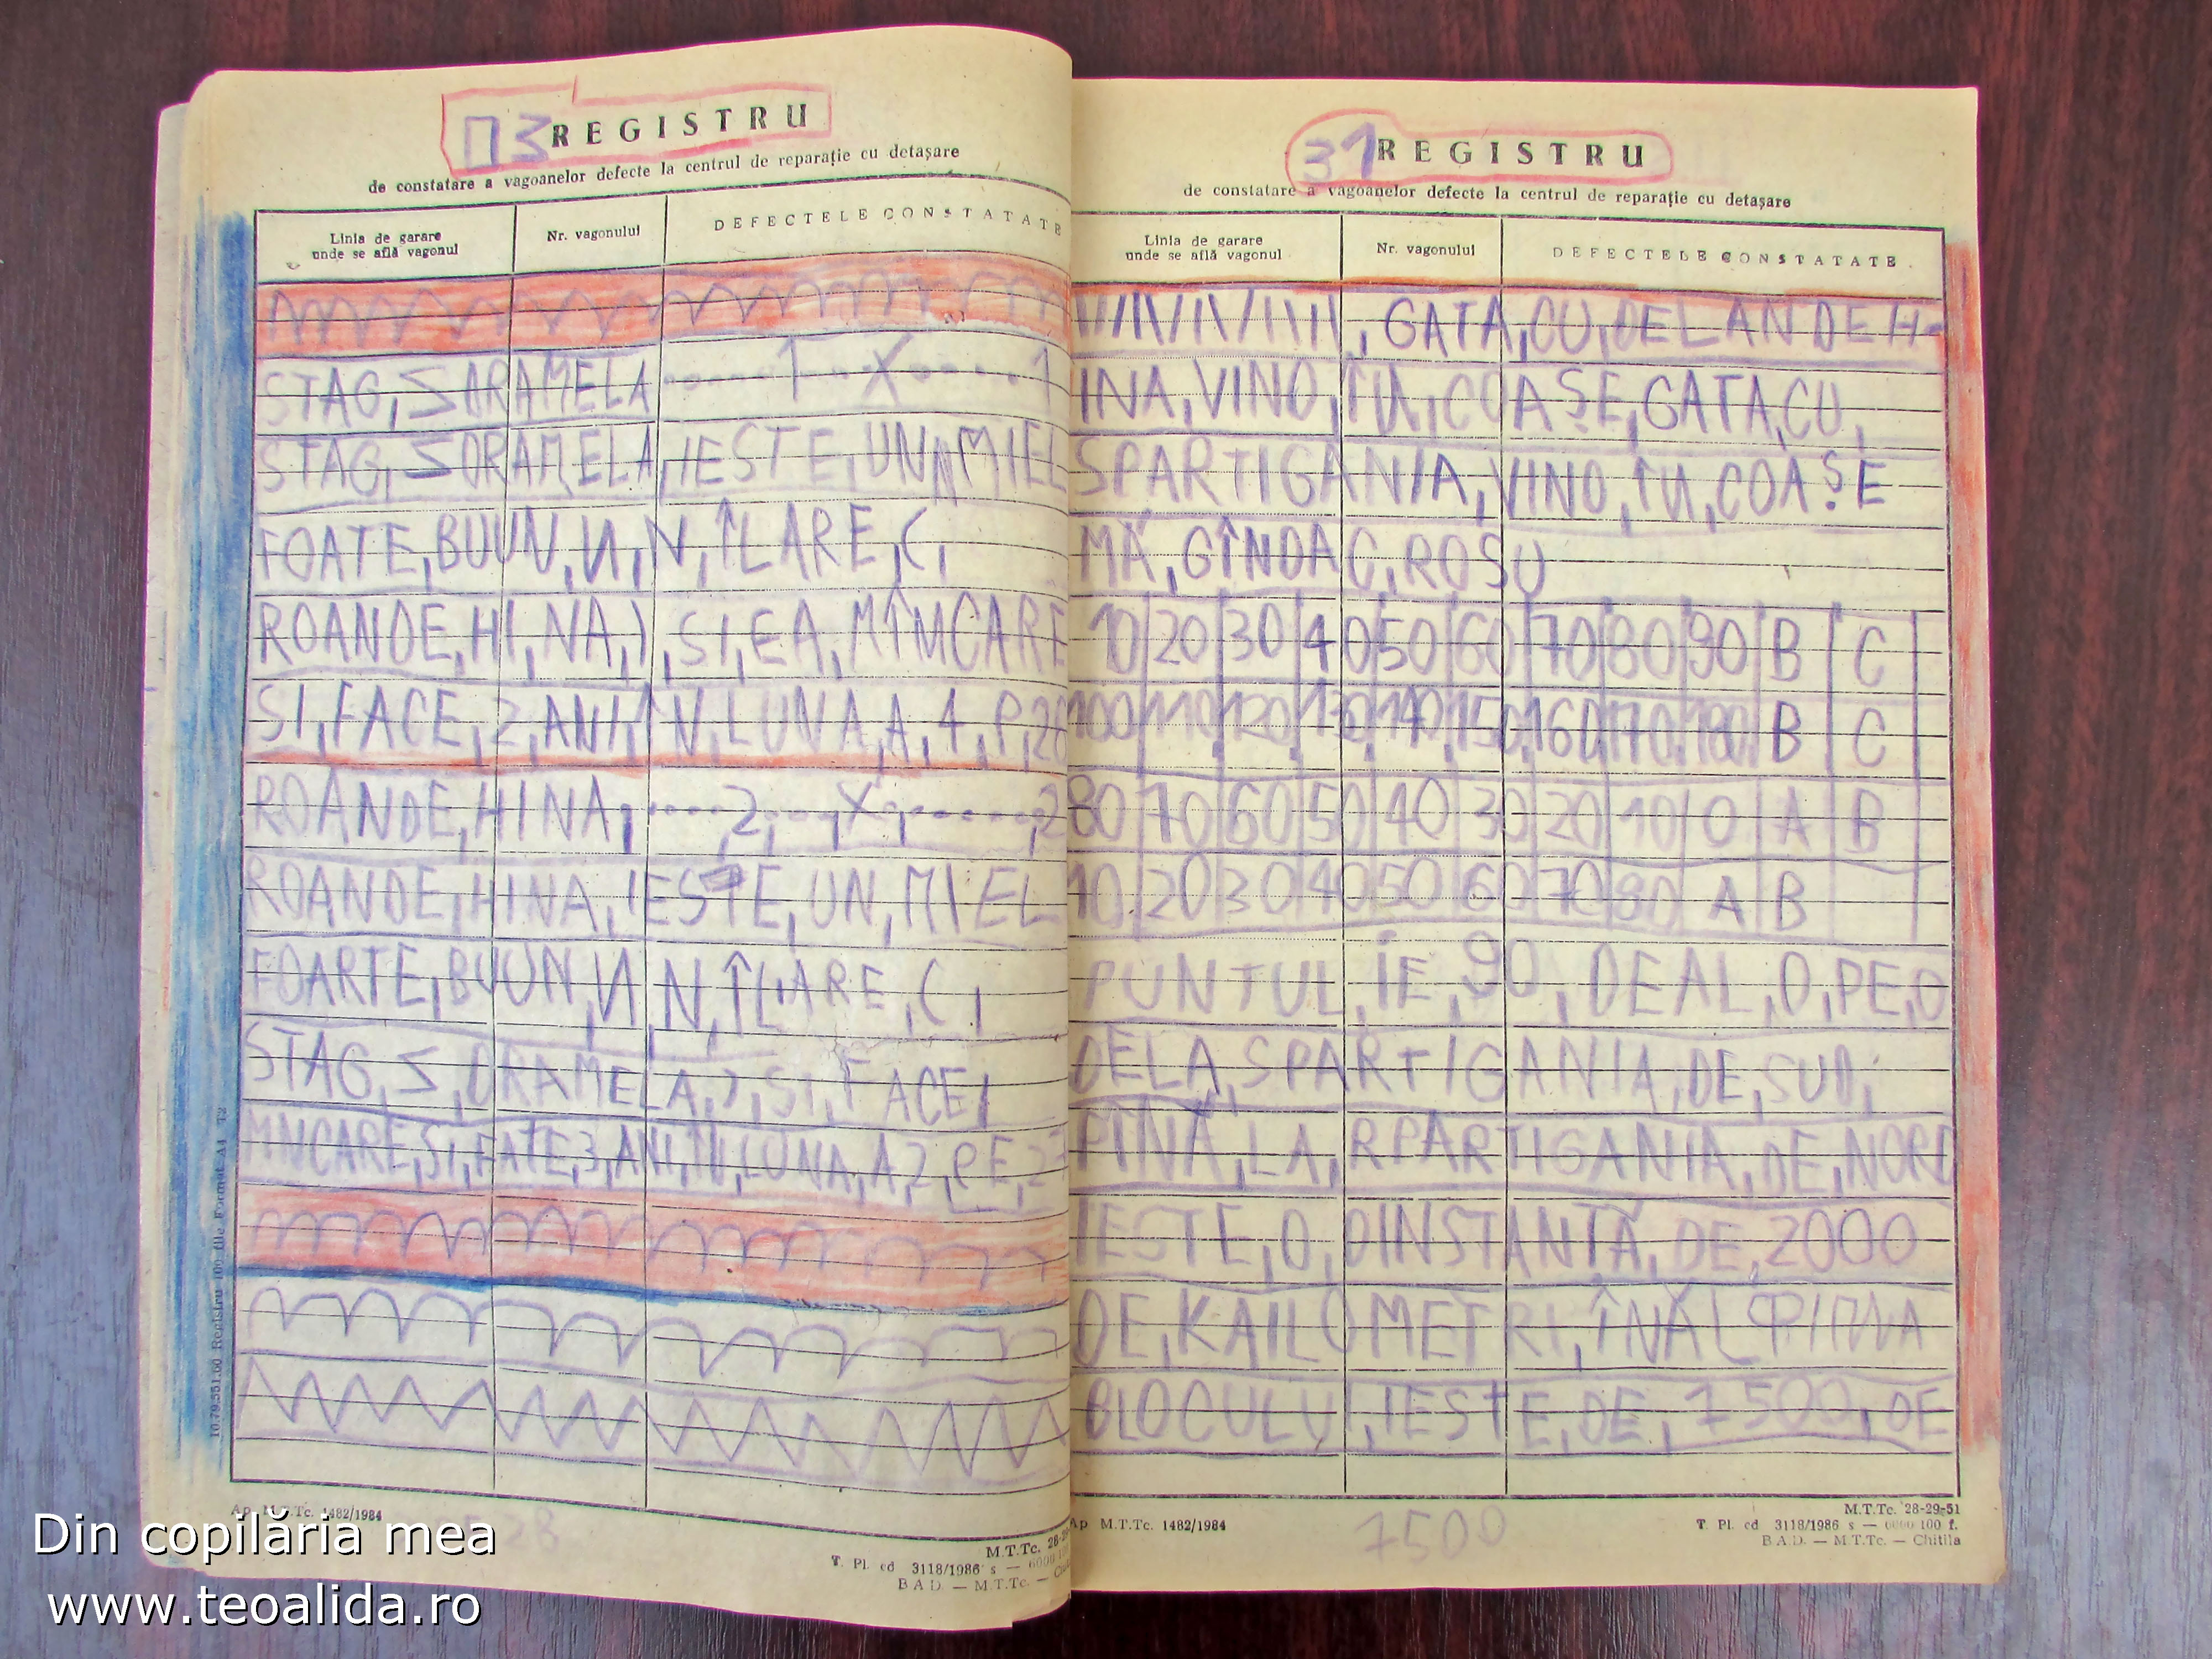 П3 REGISTRU
de constatare a vagoanelor defecte la centrul de reparație cu detașare
Linia de garare
unde se află vagonul
Nr. vagonului
DEFECTELE CONSTATATE
STAG, SORAMELA 1 X 1
STAG, SORAMELA, IESTE, UN, MIEL
FOATE, BUUN, И, N, ÎLARE, (,
ROANDE, HI, NA, ), SI, EA, MÎMCARE
SI, FACE, 2, ANI, ÎN, LUNA, A, 4, P, 26
ROANDE, HINA, 2, X, 2
ROANDE, HINA, IESTE, UN, MIEL
FOARTE, BUUN, И, N, ÎLARE, (,
STAG, S, ORAMELA, ), SI, FACE,
MNCARE, SI, FATE, 3, ANI, IN, LUNA, A, 2, PE, 27
10.79.551.00 Registru 100 file Format A4 T2
Ap M.T.Tc. 1482/1984
28
M.T.Tc. 28-29
T. Pl. cd 3118/1986 s — 6000 100
B.A.D. — M.T.Tc. —
31 REGISTRU
de constatare a vagoanelor defecte la centrul de reparație cu detașare
Linia de garare
unde se află vagonul
Nr. vagonului
DEFECTELE CONSTATATE
, GATA, CU, DELANDE H-
INA, VINO, ÎU, COAȘE, GATA, CU,
SPARTIGANIA, VINO, ÎU, COAȘE
MĂ, GÎNDAC, ROSU
10 20 30 40 50 60 70 80 90 B C
100 110 120 130 140 150 160 170 180 B C
80 70 60 50 40 30 20 10 0 A B
10 20 30 40 50 60 70 80 A B
PUNTUL, IE, 90, DEAL, O, PE, O
DELA, SPARTIGANIA, DE, SUD,
PÎNĂ, LA, RPARTIGANIA, DE, NORD
IESTE, O, DINSTANȚĂ, DE, 2000
DE, KAILOMETRI, ÎNĂL
BLOCULUI, IESTE, DE, 7500, DE
Ap M.T.Tc. 1482/1984
7500
M.T.Tc. 28-29-51
T. Pl. cd 3118/1986 s — 6000 100 f.
B.A.D. — M.T.Tc. — Chitila
Din copilăria mea
www.teoalida.ro